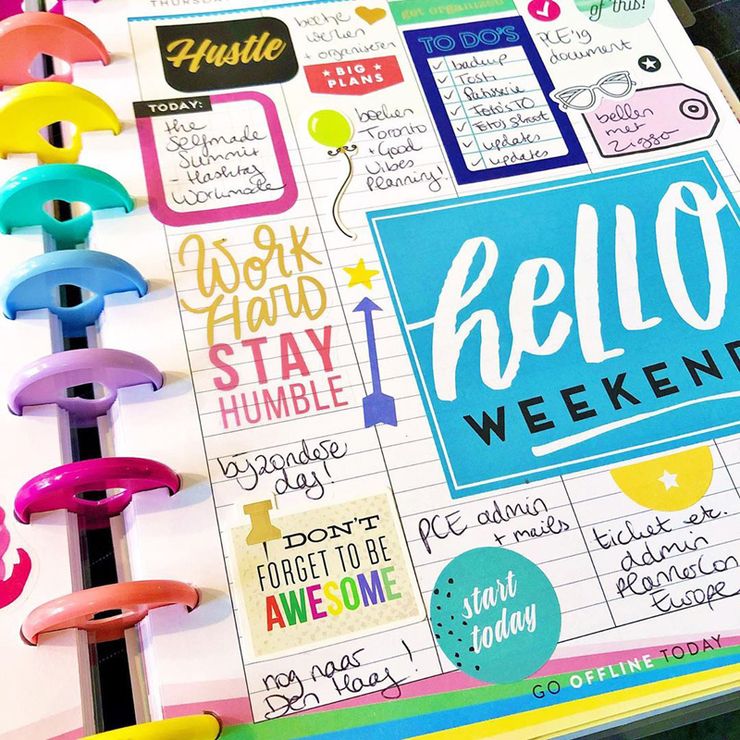 THURSDAY
Hustle
TODAY:
the
Selfmade
Summit
- Hashtag
Workmode
Work
Hard
STAY
HUMBLE
bijzondere
dag!
DON'T
FORGET TO BE
AWESOME
nog naar
Den Haag!
werken
+ organiseren
BIG
PLANS
boeken
Toronto
+ Good
Vibes
Planning!
get organized
TO DO'S
backup
Tosti
Patisserie
Foto's TO
updates
updates
of this!
PCE'19
document
bellen
met
Ziggo
hello
WEEKEND
PCE admin
+ mails
start
today
ticket etc.
admin
PlannerCon
Europe
GO OFFLINE TODAY